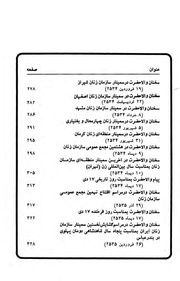 عنوان صفحه
سخنان والاحضرت در سمینار سازمان زنان شیراز
(۱۹ فروردین ۲۵۳۴) ۲۷۸
سخنان والاحضرت در سمینار سازمان زنان اصفهان
(۲۲ اردیبهشت ۲۵۳۴) ۲۸۲
سخنان والاحضرت در سمینار سازمان زنان مشهد
(۸ خرداد ۲۵۳۴) ۲۸۶
سخنان والاحضرت در سمینار زنان چهارمحال و بختیاری
(۵ شهریور ۲۵۳۴) ۲۹۱
سخنان والاحضرت در سمینار منطقه‌ای زنان کرمان
(۳۱ شهریور ۲۵۳۴) ۲۹۵
سخنان والاحضرت در هشتمین مجمع عمومی سازمان زنان
(۹ دیماه ۲۵۳۴) ۲۹۸
سخنان والاحضرت در آخرین سمینار منطقه‌ای سازمان
زنان بمناسبت سال بین‌المللی زن (تهران)
(۱۰ دیماه ۲۵۳۴) ۳۰۵
پیام والاحضرت بمناسبت روز تاریخی ۱۷ دی
(۱۷ دیماه ۲۵۳۴) ۳۱۲
سخنان والاحضرت در مراسم افتتاح نهمین مجمع عمومی
سازمان زنان
سخنان والاحضرت بمناسبت روز فرخنده ۱۷ دی
(۱۷ دیماه ۲۵۳۵)
سخنان والاحضرت در مراسم گشایش نخستین سمینار سازمان
زنان ایران بمناسبت پنجاه سال شاهنشاهی دودمان پهلوی
در بندرعباس
(۲۴ فروردین ۲۵۳۵) ۳۲۸